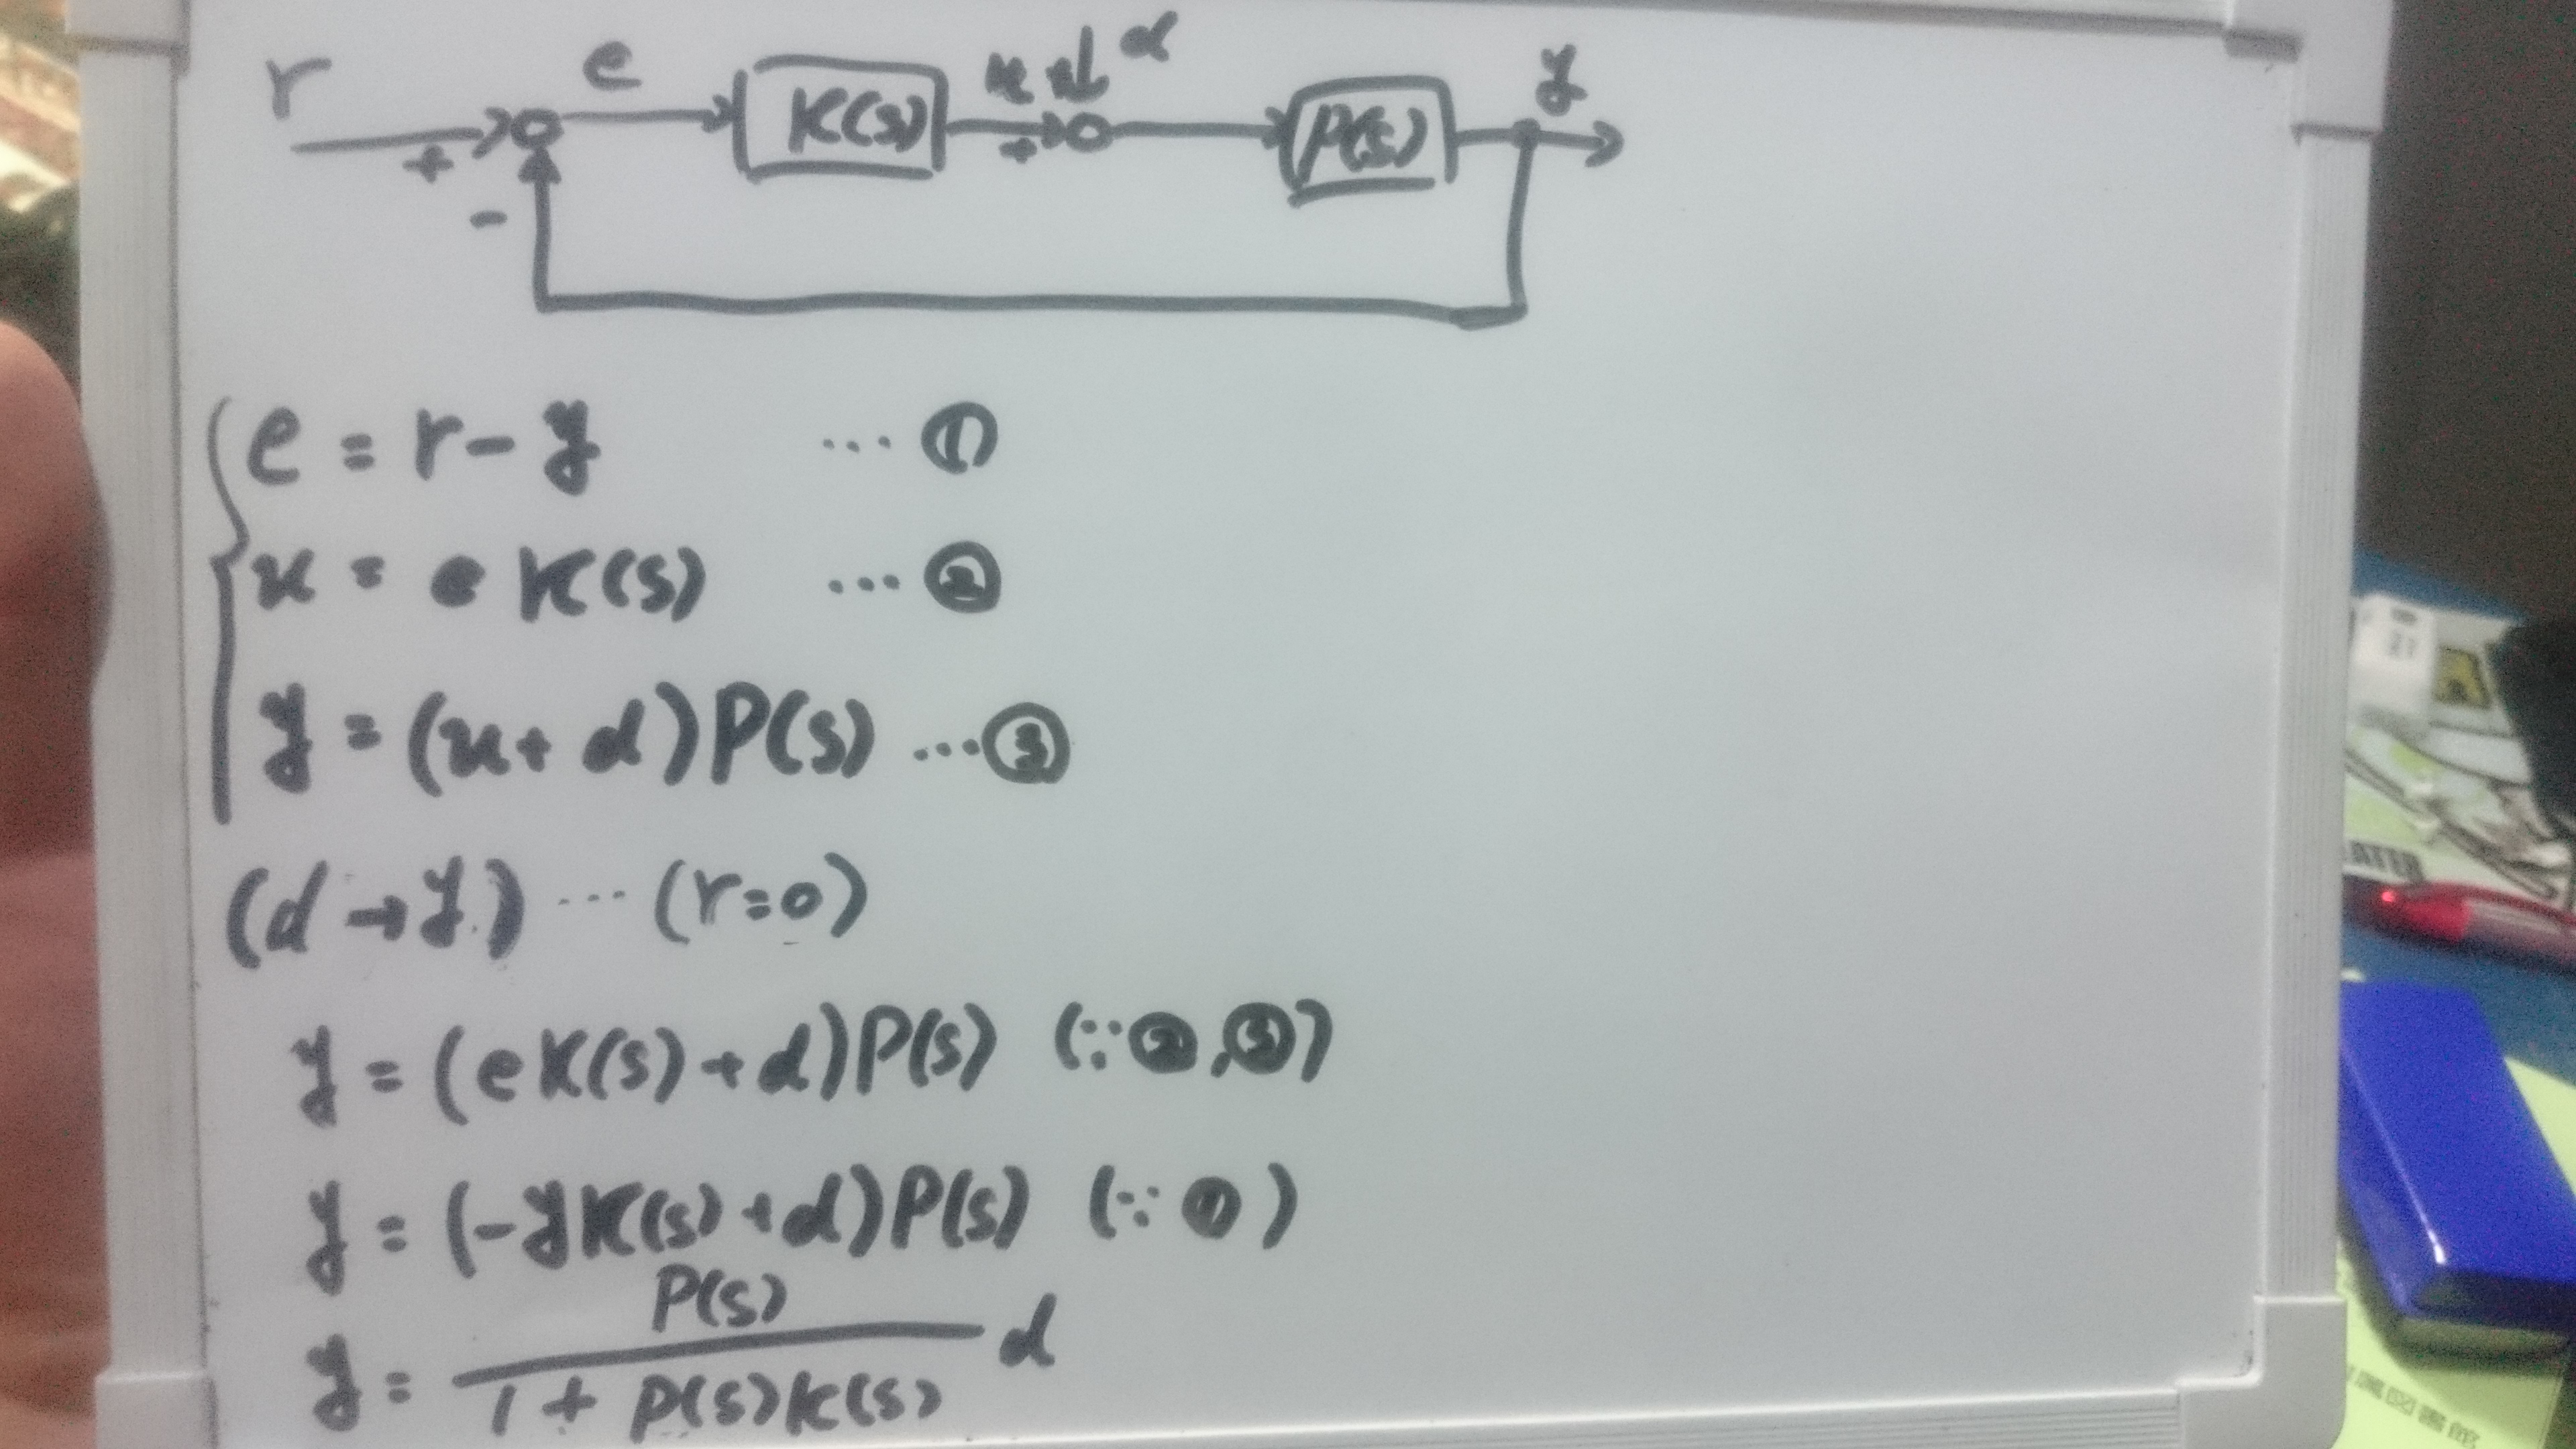 r e K(s) u d P(s) y
+ - +
e = r - y ... ①
u = e K(s) ... ②
y = (u + d) P(s) ... ③
(d → y) ... (r = 0)
y = (e K(s) + d) P(s) (∵ ②, ③)
y = (-y K(s) + d) P(s) (∵ ①)
P(s)
y = ――― d
1 + P(s) K(s)